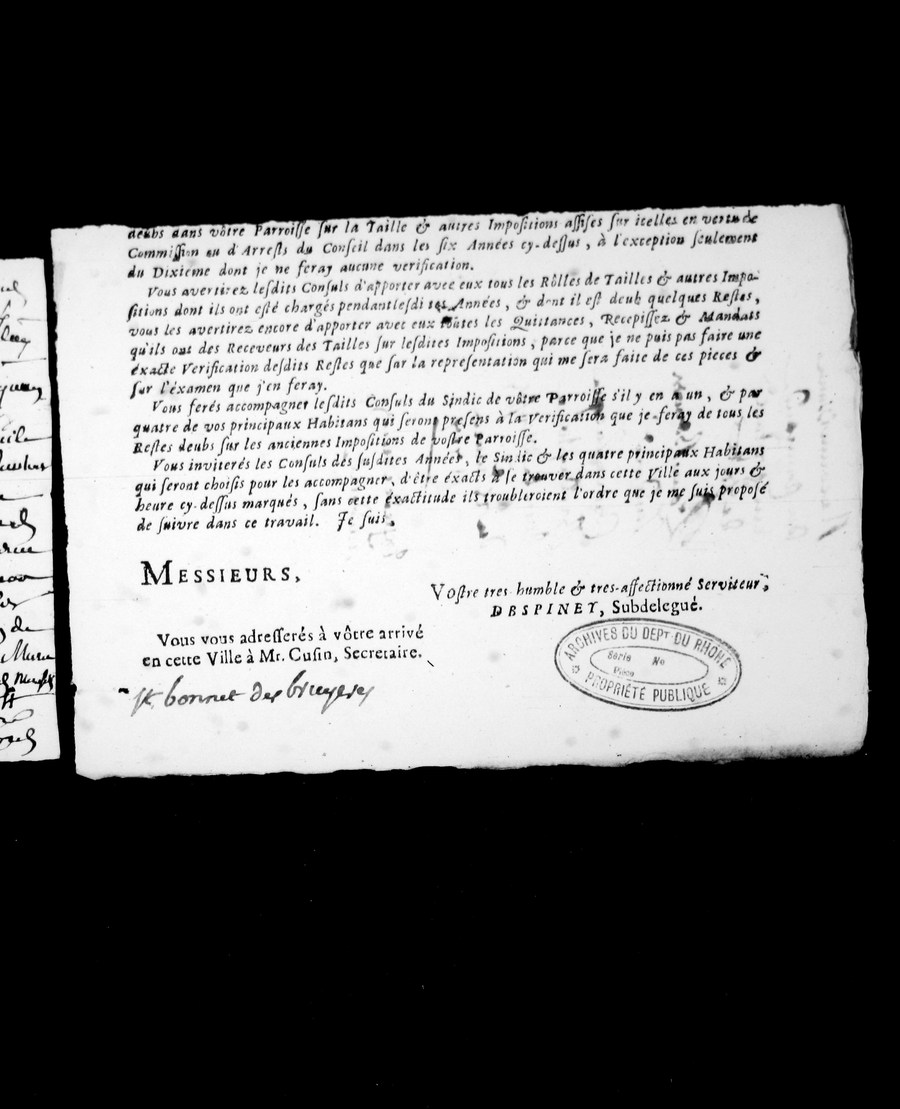 deubs dans vôtre Parroisse sur la Taille & autres Impositions assises sur icelles en vertu de
Commission ou d'Arrests du Conseil dans les six Années cy-dessus, à l'exception seulement
du Dixieme dont je ne feray aucune verification.
Vous avertirez lesdits Consuls d'apporter avec eux tous les Rôlles de Tailles & autres Impo-
sitions dont ils ont esté chargés pendant lesdites Années, & dont il est deub quelques Restes,
vous les avertirez encore d'apporter avec eux toutes les Quittances, Recepissez & Mandats
qu'ils ont des Receveurs des Tailles sur lesdites Impositions, parce que je ne puis pas faire une
éxacte Verification desdits Restes que sur la representation qui me sera faite de ces pieces &
sur l'éxamen que j'en feray.
Vous ferés accompagner lesdits Consuls du Sindic de vôtre Parroisse s'il y en a un, & par
quatre de vos principaux Habitans qui seront presens à la Verification que je feray de tous les
Restes deubs sur les anciennes Impositions de vostre Parroisse.
Vous inviterés les Consuls des susdites Années, le Sindic & les quatre principaux Habitans
qui seront choisis pour les accompagner, d'être éxacts à se trouver dans cette Ville aux jours &
heure cy-dessus marqués, sans cette éxactitude ils troubleroient l'ordre que je me suis proposé
de suivre dans ce travail. Je suis,
MESSIEURS,
Vostre tres humble & tres-affectionné Serviteur,
DESPINEY, Subdelegué.
Vous vous adresserés à vôtre arrivé
en cette Ville à Mr. Cusin, Secretaire.
st. bonnet des bruyeres
ARCHIVES DU DEPT DU RHONE
Serie No
Piece
PROPRIÉTÉ PUBLIQUE